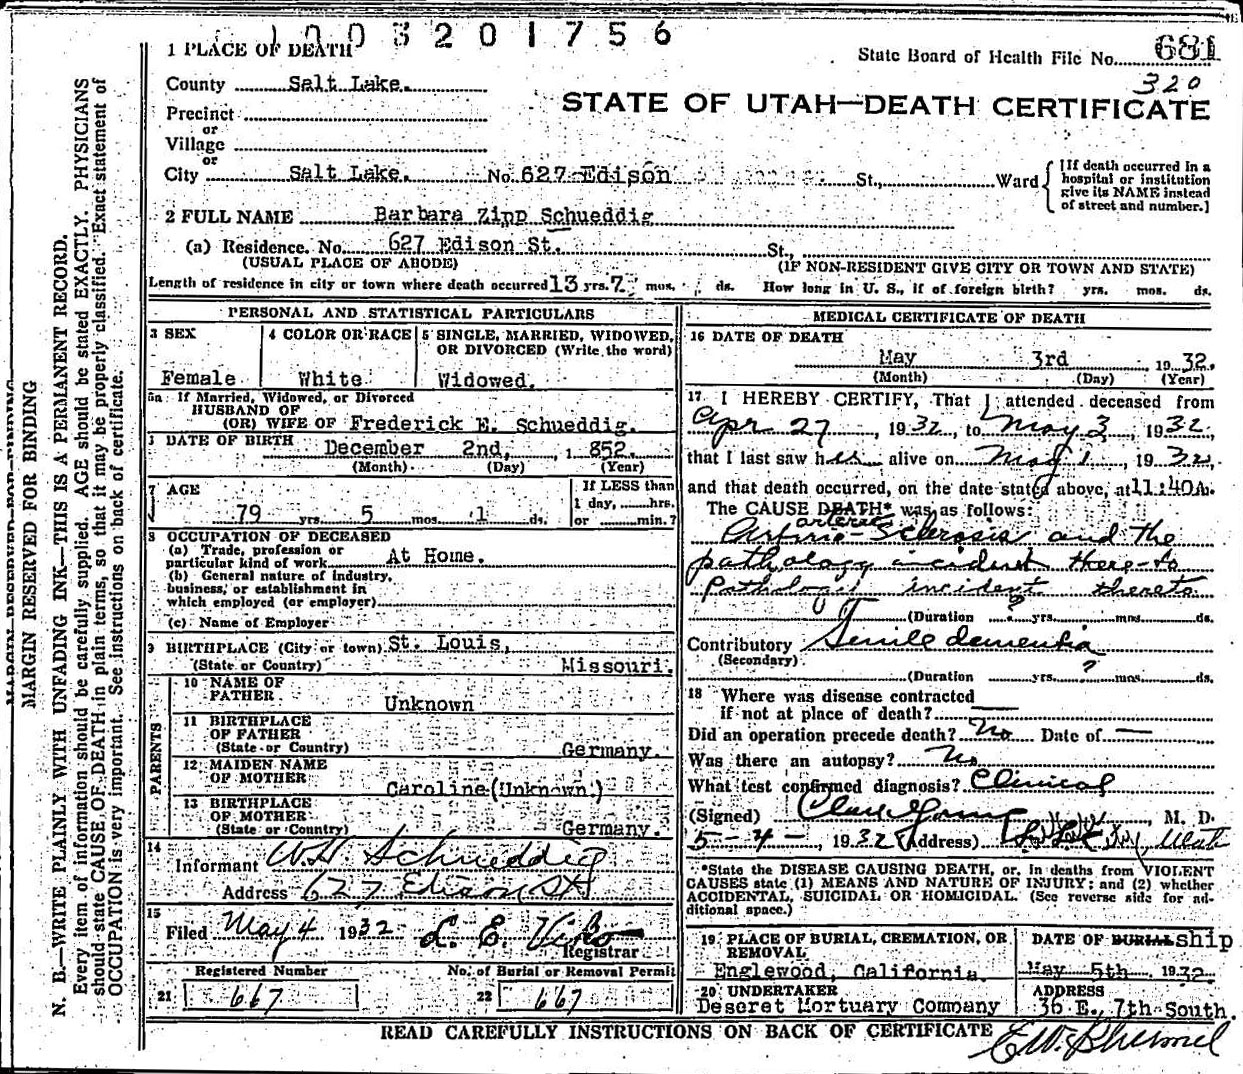 1003201756
1 PLACE OF DEATH
State Board of Health File No. 681
320
County Salt Lake.
STATE OF UTAH—DEATH CERTIFICATE
Precinct
or
Village
or
City Salt Lake. No. 627 Edison St., Ward
[If death occurred in a hospital or institution give its NAME instead of street and number.]
2 FULL NAME Barbara Zipp Schueddig
(a) Residence. No. 627 Edison St. St.,
(USUAL PLACE OF ABODE) (IF NON-RESIDENT GIVE CITY OR TOWN AND STATE)
Length of residence in city or town where death occurred 13 yrs. 7 mos. ds. How long in U. S., if of foreign birth? yrs. mos. ds.
PERSONAL AND STATISTICAL PARTICULARS
3 SEX
Female
4 COLOR OR RACE
White
5 SINGLE, MARRIED, WIDOWED, OR DIVORCED (Write the word)
Widowed.
5a If Married, Widowed, or Divorced
HUSBAND OF
(OR) WIFE OF Frederick E. Schueddig.
DATE OF BIRTH
December 2nd, 1 852.
(Month) (Day) (Year)
7 AGE
79 yrs. 5 mos. 1 ds.
If LESS than
1 day, hrs.
or min.?
8 OCCUPATION OF DECEASED
(a) Trade, profession or
particular kind of work At Home.
(b) General nature of industry,
business, or establishment in
which employed (or employer)
(c) Name of Employer
9 BIRTHPLACE (City or town) St. Louis,
(State or Country) Missouri.
PARENTS
10 NAME OF
FATHER Unknown
11 BIRTHPLACE
OF FATHER
(State or Country) Germany.
12 MAIDEN NAME
OF MOTHER Caroline (Unknown.)
13 BIRTHPLACE
OF MOTHER
(State or Country) Germany.
14
Informant W.H. Schueddig
Address 627 Edison St
15
Filed May 4 1932
Registrar
Registered Number
21 667
No. of Burial or Removal Permit
22 667
MEDICAL CERTIFICATE OF DEATH
16 DATE OF DEATH
May 3rd 1932.
(Month) (Day) (Year)
17 I HEREBY CERTIFY, That I attended deceased from
Apr 27, 1932, to May 3, 1932,
that I last saw her alive on May 1, 1932,
and that death occurred, on the date stated above, at 11:40A.
The CAUSE DEATH* was as follows:
arterio
Arterio-Sclerosis and the
pathology incident there-to
Pathology incident thereto
(Duration ? yrs. mos. ds.
Contributory Senile dementia
(Secondary)
(Duration yrs. ? mos. ds.
18 Where was disease contracted
if not at place of death?
Did an operation precede death? No Date of —
Was there an autopsy? No
What test confirmed diagnosis? Clinical
(Signed) M. D.
5-4-, 1932 (Address) Utah
*State the DISEASE CAUSING DEATH, or, in deaths from VIOLENT
CAUSES state (1) MEANS AND NATURE OF INJURY; and (2) whether
ACCIDENTAL, SUICIDAL OR HOMICIDAL. (See reverse side for ad-
ditional space.)
19 PLACE OF BURIAL, CREMATION, OR
REMOVAL
Englewood, California.
DATE OF BURIAL ship
May 5th 1932.
20 UNDERTAKER
Deseret Mortuary Company
ADDRESS
36 E., 7th-South.
READ CAREFULLY INSTRUCTIONS ON BACK OF CERTIFICATE
MARGIN RESERVED FOR BINDING
N. B.—WRITE PLAINLY WITH UNFADING INK—THIS IS A PERMANENT RECORD.
Every item of information should be carefully supplied. AGE should be stated EXACTLY. PHYSICIANS
should state CAUSE OF DEATH in plain terms, so that it may be properly classified. Exact statement of
OCCUPATION is very important. See instructions on back of certificate.